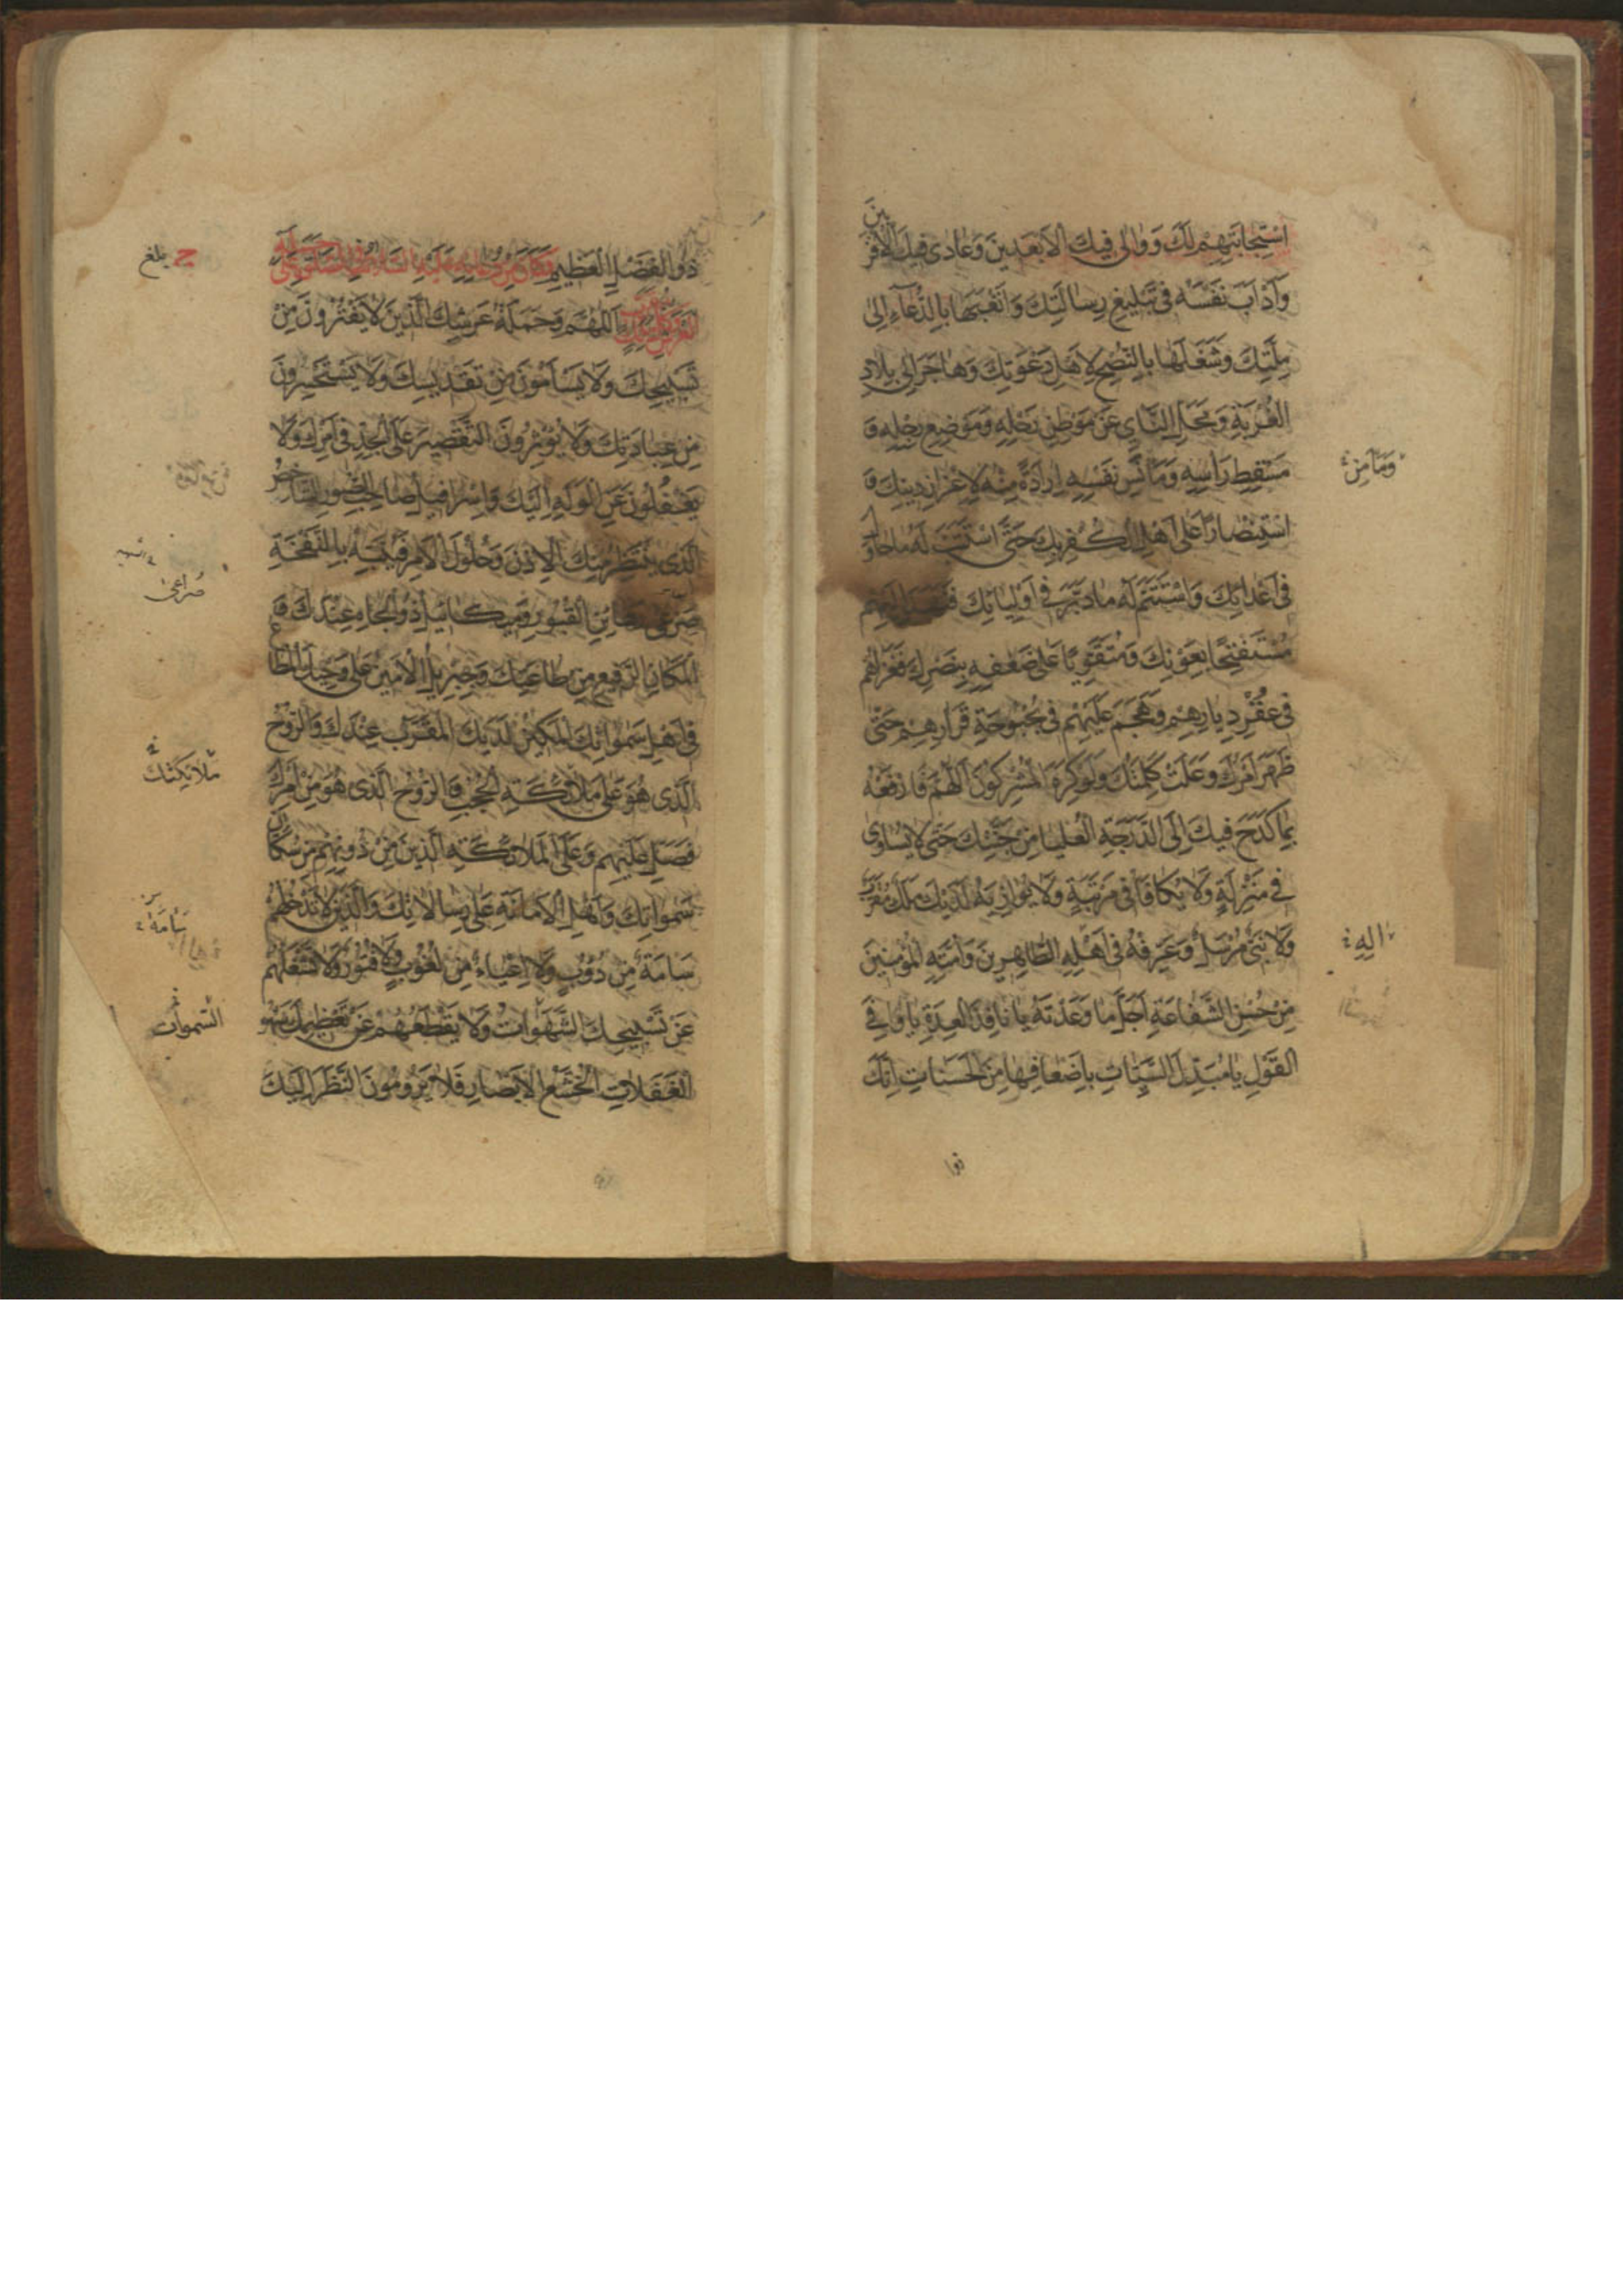 اسْتِجَابَتِهِمْ لَكَ وَوَالى فِيكَ الْاَبْعَدِينَ وَعَادى فِيكَ الْاَقْرَبِينَ
وَاَدْاَبَ نَفْسَهُ فِى تَبْلِيغِ رِسَالَتِكَ وَاَتْعَبَهَا بِالدُّعَاءِ اِلى
مِلَّتِكَ وَشَغَلَهَا بِالنُّصْحِ لِاَهْلِ دَعْوَتِكَ وَهَاجَرَ اِلى بِلَادِ
الْغُرْبَةِ وَمَحَلِّ النَّأْىِ عَنْ مَوْطِنِ رَحْلِهِ وَمَوْضِعِ رِجْلِهِ وَ
مَسْقَطِ رَاْسِهِ وَمَاْنَسِ نَفْسِهِ اِرَادَةً مِنْهُ لِاِعْزَازِ دِينِكَ وَ
وَمَاْمَنِ
اسْتِنْصَارًا عَلى اَهْلِ الْكُفْرِ بِكَ حَتَّى اسْتَتَبَّ لَهُ مَا حَاوَلَ
فِى اَعْدَائِكَ وَاسْتَتَمَّ لَهُ مَا دَبَّرَ فِى اَوْلِيَائِكَ فَنَهَدَ اِلَيْهِمْ
مُسْتَفْتِحًا بِعَوْنِكَ وَمُتَقَوِّيًا عَلى ضَعْفِهِ بِنَصْرِكَ فَغَزَاهُمْ
فِى عُقْرِ دِيَارِهِمْ وَهَجَمَ عَلَيْهِمْ فِى بُحْبُوحَةِ قَرَارِهِمْ حَتّى
ظَهَرَ اَمْرُكَ وَعَلَتْ كَلِمَتُكَ وَلَوْ كَرِهَ الْمُشْرِكُونَ اَللّهُمَّ فَارْفَعْهُ
بِمَا كَدَحَ فِيكَ اِلَى الدَّرَجَةِ الْعُلْيَا مِنْ جَنَّتِكَ حَتّى لَا يُسَاوى
فِى مَنْزِلَةٍ وَلَا يُكَافَا فِى مَرْتَبَةٍ وَلَا يُوَازِيَهُ لَدَيْكَ مَلَكٌ مُقَرَّبٌ
وَلَا نَبِىٌّ مُرْسَلٌ وَعَرِّفْهُ فِى اَهْلِهِ الطَّاهِرِينَ وَاُمَّتِهِ الْمُؤْمِنِينَ
الِهِ
مِنْ حُسْنِ الشَّفَاعَةِ اَجَلَّ مَا وَعَدْتَهُ يَا نَافِذَ الْعِدَةِ يَا وَافِىَ
الْقَوْلِ يَا مُبَدِّلَ السَّيِّئَاتِ بِاَضْعَافِهَا مِنَ الْحَسَنَاتِ اِنَّكَ
ذو ا
ذُو الْفَضْلِ الْعَظِيمِ وَكَانَ مِنْ دُعَائِهِ عَلَيْهِ السَّلَامُ فِى الصَّلوةِ عَلى حَمَلَةِ
بلغ
الْعَرْشِ اَللّهُمَّ وَحَمَلَةُ عَرْشِكَ الَّذِينَ لَا يَفْتُرُونَ مِنْ
تَسْبِيحِكَ وَلَا يَسْاَمُونَ مِنْ تَقْدِيسِكَ وَلَا يَسْتَحْسِرُونَ
مِنْ عِبَادَتِكَ وَلَا يُؤْثِرُونَ التَّقْصِيرَ عَلَى الْجِدِّ فِى اَمْرِكَ وَلَا
يَغْفُلُونَ عَنِ الْوَلَهِ اِلَيْكَ وَاِسْرَافِيلُ صَاحِبُ الصُّورِ الشَّاخِصُ
الَّذِى يَنْتَظِرُ مِنْكَ الْاِذْنَ وَحُلُولَ الْاَمْرِ فَيُنَبِّهُ بِالنَّفْخَةِ
صَرْعى رَهَائِنِ الْقُبُورِ وَمِيكَائِيلُ ذُو الْجَاهِ عِنْدَكَ وَ
الْمَكَانِ الرَّفِيعِ مِنْ طَاعَتِكَ وَجِبْرِيلُ الْاَمِينُ عَلى وَحْيِكَ الْمُطَاعُ
فِى اَهْلِ سَموَاتِكَ الْمَكِينُ لَدَيْكَ الْمُقَرَّبُ عِنْدَكَ وَالرُّوحُ
مَلَائِكَتِكَ
الَّذِى هُوَ عَلى مَلَائِكَةِ الْحُجُبِ وَالرُّوحُ الَّذِى هُوَ مِنْ اَمْرِكَ
فَصَلِّ عَلَيْهِمْ وَعَلَى الْمَلَائِكَةِ الَّذِينَ مِنْ دُونِهِمْ مِنْ سُكَّانِ
سَموَاتِكَ وَاَهْلِ الْاَمَانَةِ عَلى رِسَالَاتِكَ وَالَّذِينَ لَا تَدْخُلُهُمْ
سَاْمَةٌ
سَاْمَةٌ مِنْ دُؤُبٍ وَلَا اِعْيَاءٌ مِنْ لُغُوبٍ وَلَا فُتُورٌ وَلَا تَشْغَلُهُمْ
عَنْ تَسْبِيحِكَ الشَّهَوَاتُ وَلَا يَقْطَعُهُمْ عَنْ تَعْظِيمِكَ سَهْوُ
الْغَفَلَاتِ الْخُشَّعُ الْاَبْصَارِ فَلَا يَرُومُونَ النَّظَرَ اِلَيْكَ